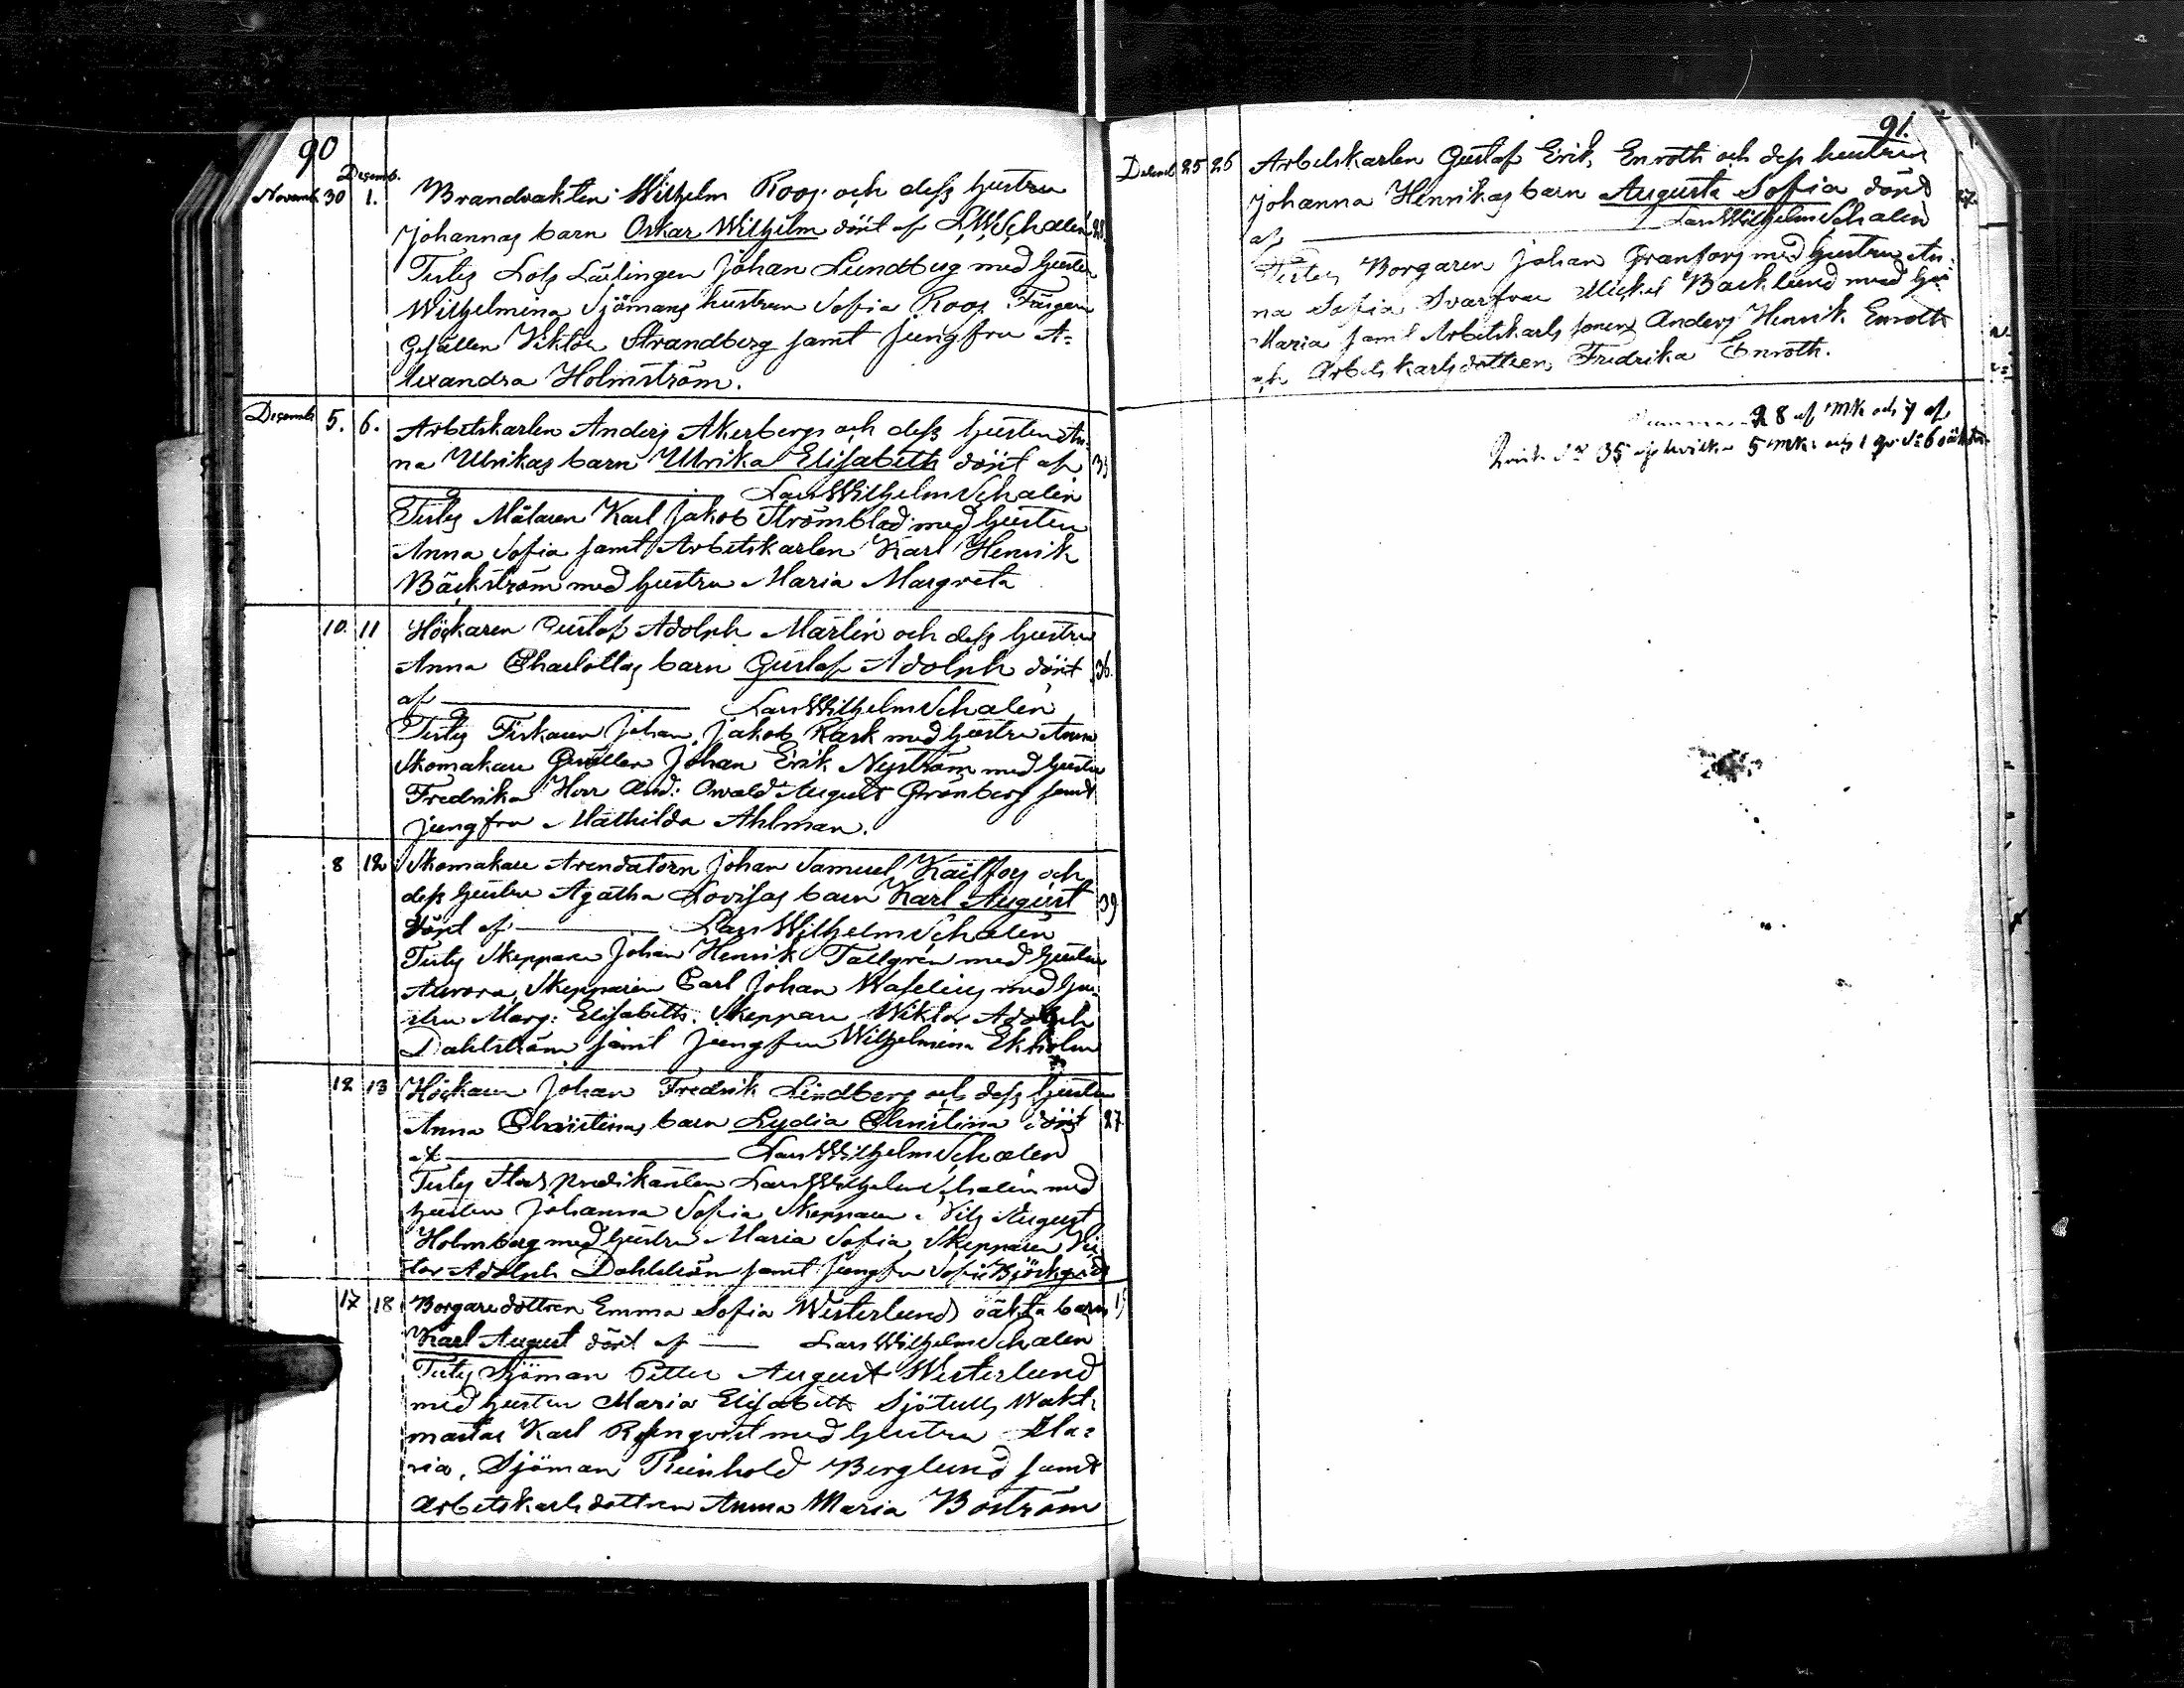 90
Decemb.
Novemb. 30 1. Brandvakten Wilhelm Roos och dess hustru
Johannas barn Oskar Wilhelm dönt af L W Schalén 28
Testes Lots Lärlingen Johan Lundberg med hustru
Wilhelmina Sjömans hustrun Sofia Roos Färgare
Gesällen Viktor Strandberg samt jungfru A-
lexandra Holmström.
Decemb 5. 6. Arbetskarlen Anders Åkerbergs och dess hustru An-
na Ulrikas barn Ulrika Elisabeth dönt af
Lars Wilhelm Schalén
Testes Målaren Karl Jakob Strömblad med hustru
Anna Sofia samt Arbetskarlen Karl Henrik
Bäckström med hustru Maria Margreta
10. 11 Hökaren Gustaf Adolph Martin och dess hustru
Anna Charlottas barn Gustaf Adolph dönt 36.
af Lars Wilhelm Schalén
Testes Fiskaren Johan Jakob Rask med hustru Anna
Skomakare Gesällen Johan Erik Nyström med hustru
Fredrika Herr And: Oswald August Grönberg samt
jungfru Mathilda Ahlman.
8 12 Skomakare Arendatorn Johan Samuel och
dess hustru Agatha Lovisas barn Karl August 39
dönt af Lars Wilhelm Schalén
Testes Skepparen Johan Henrik Tallgren med hustru
Aurora, Skepparen Carl Johan Waselius med hu-
stru Marg: Elisabeth. Skeppare Wiktor Adolph
Dahlström samt Jungfru Wilhelmina Ekholm
12 13 Hökaren Johan Fredrik Lindberg och dess hustru
Anna Christinas barn Lydia Christina dönt 27
af Lars Wilhelm Schalén
Testes Stads predikanten Lars Wilhelm Schalén med
hustru Johanna Sofia Skepparen Nils August
Holmberg med hustru Maria Sofia, Skepparen Vik-
tor Adolph Dahlström samt Jungfru Sofia
17 18 Borgaredottren Emma Sofia Westerlunds oäkta barn
Karl August dönt af Lars Wilhelm Schalén
Testes Sjöman Petter August Westerlund
med hustru Maria Elisabeth Sjötulls Wakt-
mästar Karl Rosenqvist med hustru Ma-
ria, Sjöman Reinhold Berglund samt
Arbetskarls dottren Anna Maria Boström
91.
Decemb 25 26 Arbetskarlen Gustaf Erik Enroth och dess hustrun
Johanna Henrikas barn Augusta Sofia dönt 27.
af Lars Wilhelm Schalén
Testes Borgaren Johan Granfors med hustru An-
na Sofia Svarfvar Mickel Backlund med hu
Maria samt Arbetskarls sonen Anders Henrik Enroth
och Arbetskarlsdottren Fredrika Enroth.
28 af Mk och 7 af
35 af hvilka 5 Mk: och 1 Qv: oäkta